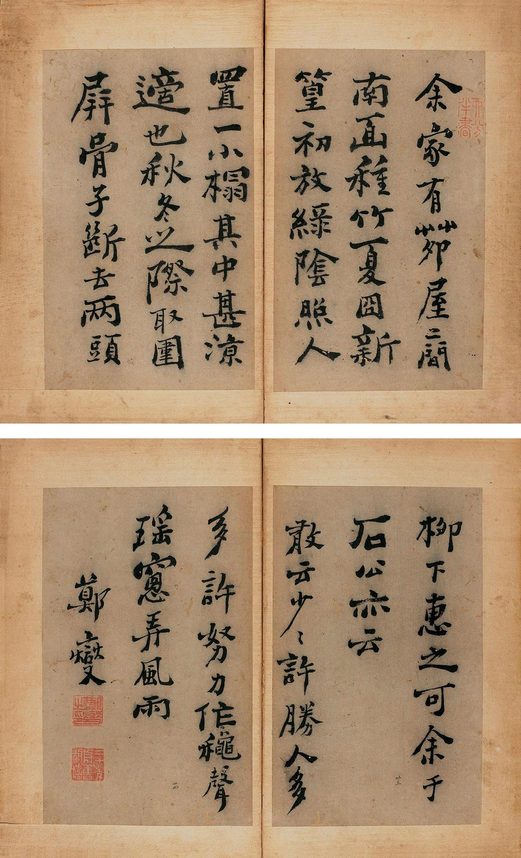 余家有茆屋二間
南面種竹夏日新
篁初放綠陰照人
置一小榻其中甚涼
適也秋冬之際取圍
屏骨子斷去兩頭
柳下惠之可余于
石公亦云
敢云少〻許勝人多
多許努力作龝聲
瑤窻弄風雨
鄭燮